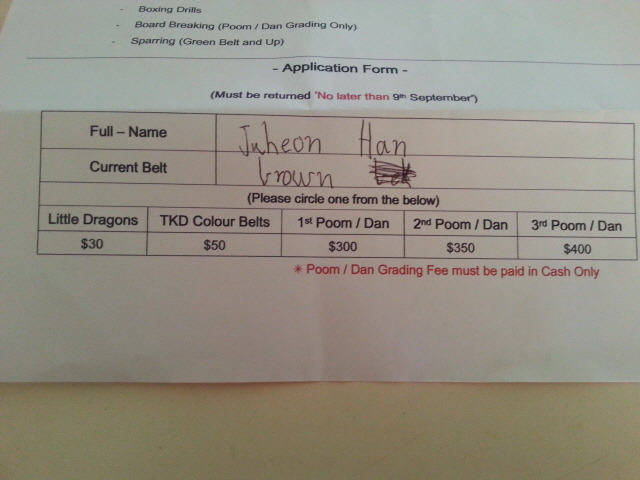 - Boxing Drills
- Board Breaking (Poom / Dan Grading Only)
- Sparring (Green Belt and Up)
- Application Form -
(Must be returned "No later than 9th September")
Full – Name Juheon Han
Current Belt brown
(Please circle one from the below)
Little Dragons TKD Colour Belts 1st Poom / Dan 2nd Poom / Dan 3rd Poom / Dan
$30 $50 $300 $350 $400
* Poom / Dan Grading Fee must be paid in Cash Only